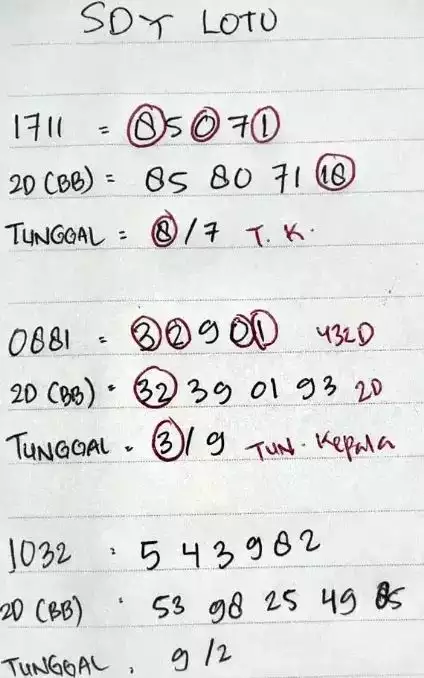 SDY LOTU
1711 = 85071
2D (BB) = 85 80 71 18
TUNGGAL = 8/7 T. K.
0881 = 32901 432D
2D (BB) = 32 39 01 93 2D
TUNGGAL = 3/9 TUN. Kepala
1032 : 543982
2D (BB) : 53 98 25 49 85
TUNGGAL . 9/2